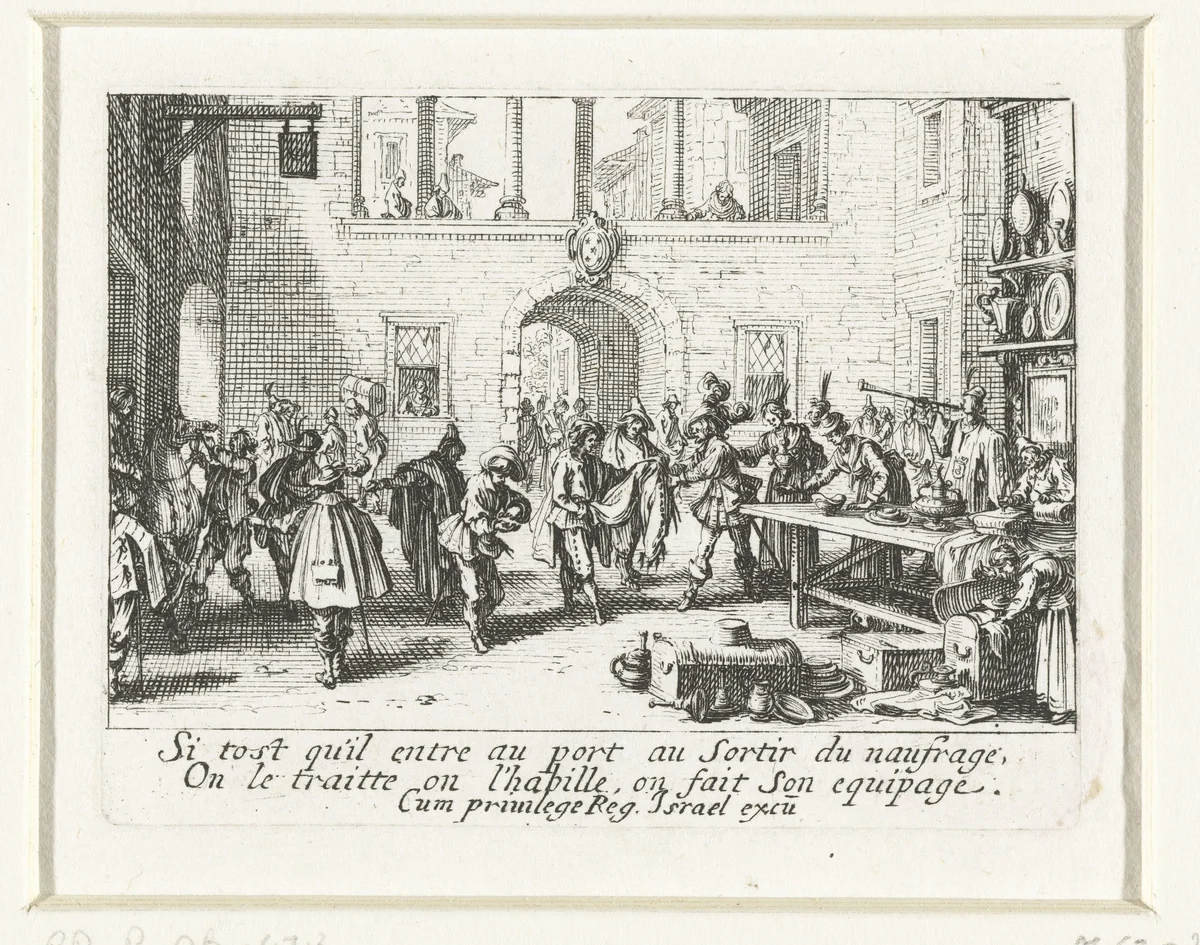 Si tost qu'il entre au port au Sortir du naufrage,
On le traitte on l'habille, on fait Son equipage.
Cum privilege Reg. Israel excū